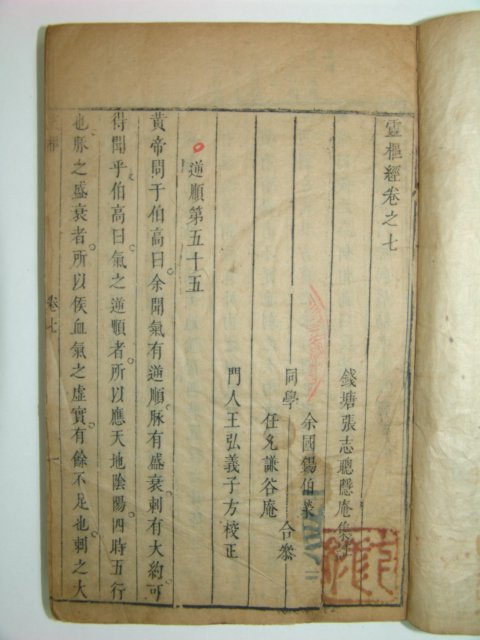 靈樞經卷之七
錢塘張志聰隱庵集註
余國錫伯榮
同學 合參
任允謙谷庵
門人王弘義子方校正
逆順第五十五
黃帝問于伯高曰余聞氣有逆順脉有盛衰刺有大約可
得聞乎伯高曰氣之逆順者所以應天地陰陽四時五行
也脉之盛衰者所以候血氣之虛實有餘不足也刺之大
卷七
一